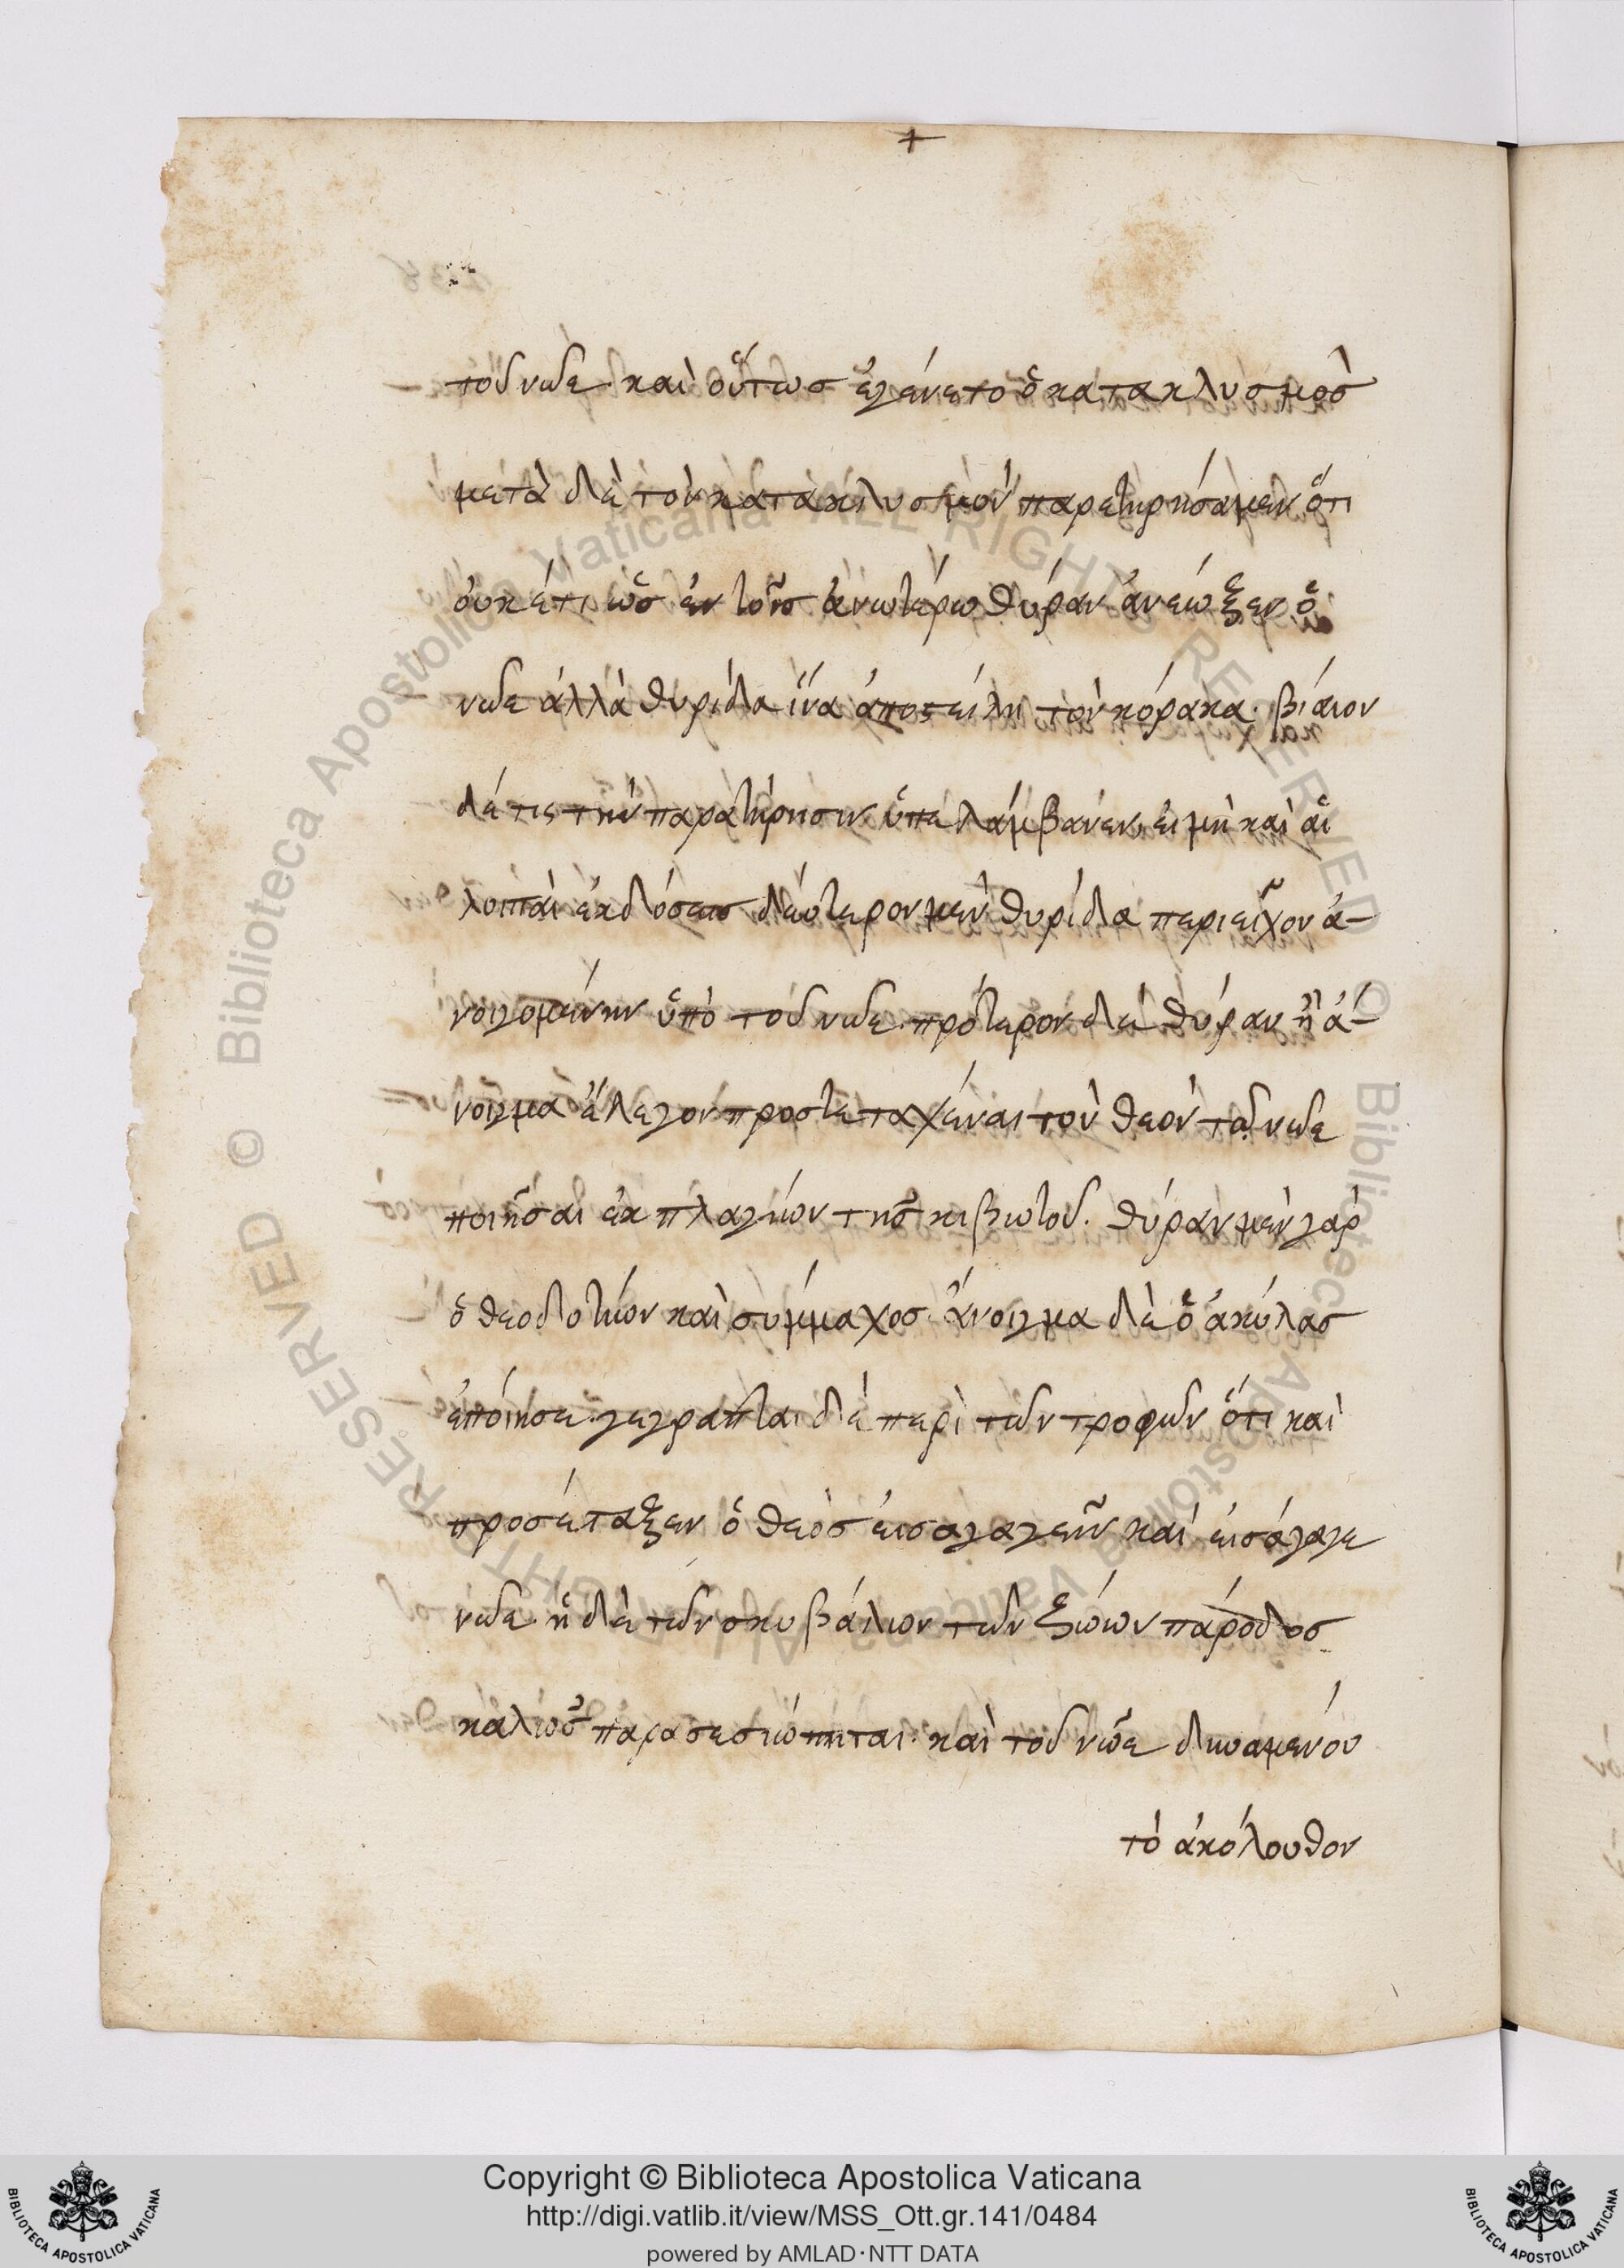 +
τοῦ νῶε· καὶ οὕτως ἐγένετο ὁ κατακλυσμὸσ
μετὰ δὲ τὸν κατακλυσμὸν παρετηρήσαμεν ὅτι
οὐκέτι ὡσ ἐν τοῖσ ἀνωτέρω θύραν ἀνέωξεν ὁ
νῶε ἀλλὰ θυρίδα ἵνα ἀποστείλη τὸν κόρακα· βίαιον
δέ τις τὴν παρατήρησιν ὑπελάμβανεν, εἰ μὴ καὶ αἱ
λοιπαὶ ἐκδόσεισ δεύτερον μὲν θυρίδα περιεῖχον ἀ-
νοιγομένην ὑπὸ τοῦ νῶε· πρότερον δὲ θύραν ἢ ἀ-
νοιγμα ἔλεγον προστεταχέναι τὸν θεὸν τῶ νῶε
ποιῆσαι ἐκ πλαγίων τῆσ κιβωτοῦ. θύραν μὲν γὰρ
ὁ θεοδοτίων καὶ σύμμαχοσ· ἄνοιγμα δὲ ὁ ἀκύλασ
ἐποίησε· γέγραπται δὲ περὶ τῶν τροφῶν ὅτι καὶ
προσέταξεν ὁ θεὸσ εἰσαγαγεῖν καὶ εἰσάγαγε
νῶε· ἡ δὲ τῶν σκυβάλων τῶν ζώων πάροδοσ
καλῶσ παρασεσιώπηται· καὶ τοῦ νῶε δυναμένου
τὸ ἀκόλουθον
© Biblioteca Apostolica Vaticana ALL RIGHTS RESERVED
© Biblioteca Apostolica Vaticana ALL RIGHTS RESERVED
BIBLIOTECA APOSTOLICA VATICANA
Copyright © Biblioteca Apostolica Vaticana
http://digi.vatlib.it/view/MSS_Ott.gr.141/0484
powered by AMLAD·NTT DATA
BIBLIOTECA APOSTOLICA VATICANA